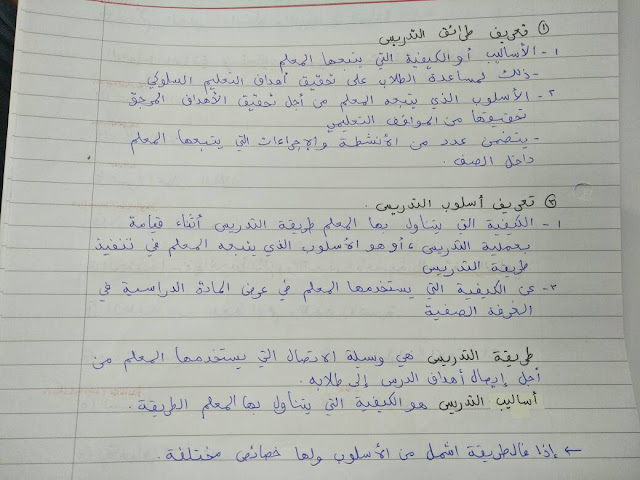 ① تعريف طرائق التدريس
١- الأساليب أو الكيفية التي يتبعها المعلم
- ذلك لمساعدة الطلاب على تحقيق أهداف التعليم السلوكي
٢- الأسلوب الذي يتبعه المعلم من أجل تحقيق الأهداف المرجو
تحقيقها من المواقف التعليمي
- يتضمن عدد من الأنشطة والإجراءات التي يتبعها المعلم
داخل الصف.
② تعريف أسلوب التدريس.
١- الكيفية التي يتناول بها المعلم طريقة التدريس أثناء قيامة
بعملية التدريس، أو هو الأسلوب الذي يتبعه المعلم في تنفيذ
طريقة التدريس
٣- عن الكيفية التي يستخدمها المعلم في عرض المادة الدراسية في
الغرفة الصفية
طريقة التدريس هي وسيلة الاتصال التي يستخدمها المعلم من
أجل إيصال أهداف الدرس إلى طلابه.
أساليب التدريس هو الكيفية التي يتناول بها المعلم الطريقة.
← إذا فالطريقة اشمل من الأسلوب ولها خصائص مختلفة.